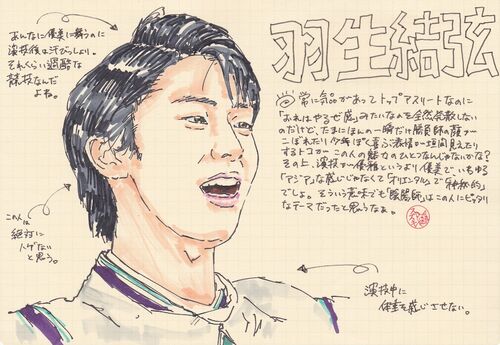 あんなに優美に舞うのに
演技後は汗びっしょり。
それくらい過酷な
競技なんだ
よね。
羽生結弦
常に気品があってトップアスリートなのに
「おれはやるぜ感」みたいなのを全然発散しない
のだけど、たまにほんの一瞬だけ勝負師の顔が
こぼれたり少年ぽく喜ぶ表情が垣間見えたり
するトコがこの人の魅力のひとつなんじゃないかな?
その上、演技が優雅というより優美で、いわゆる
「アジア」な感じじゃなくて「オリエンタル」で「神秘的」
でしょ。そういう意味でも「陰陽師」はこの人にピッタリ
なテーマだったと思うなぁ。
この人は
絶対に
ハゲない
と思う。
演技中に
体重を感じさせない。